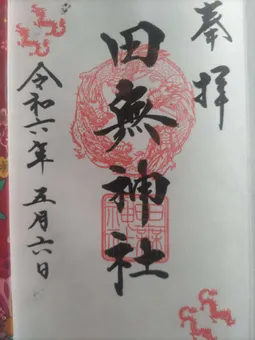 奉拝
田無神社
令和六年 五月六日